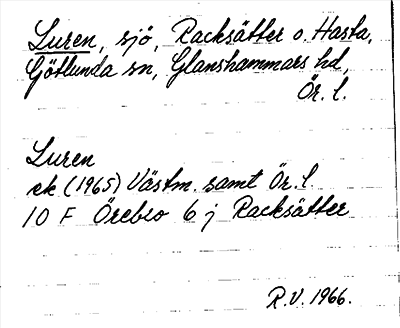 Luren, sjö, Racksätter o. Hasta,
Götlunda sn, Glanshammars hd,
Ör. l.
Luren
ek (1965) Västm. samt Ör. l.
10 F Örebro 6 j Racksätter
R.V. 1966.